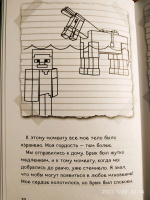 К этому моменту всё моё тело было
изранено. Моя гордость — тем более.
Мы отправились к дому. Брек был жутко
медленным, и к тому моменту, когда мы
добрались до ранчо, уже стемнело. Я знал,
что мобы могут появиться в любое мгновение!
Моё сердце колотилось, но Брек был спокоен.